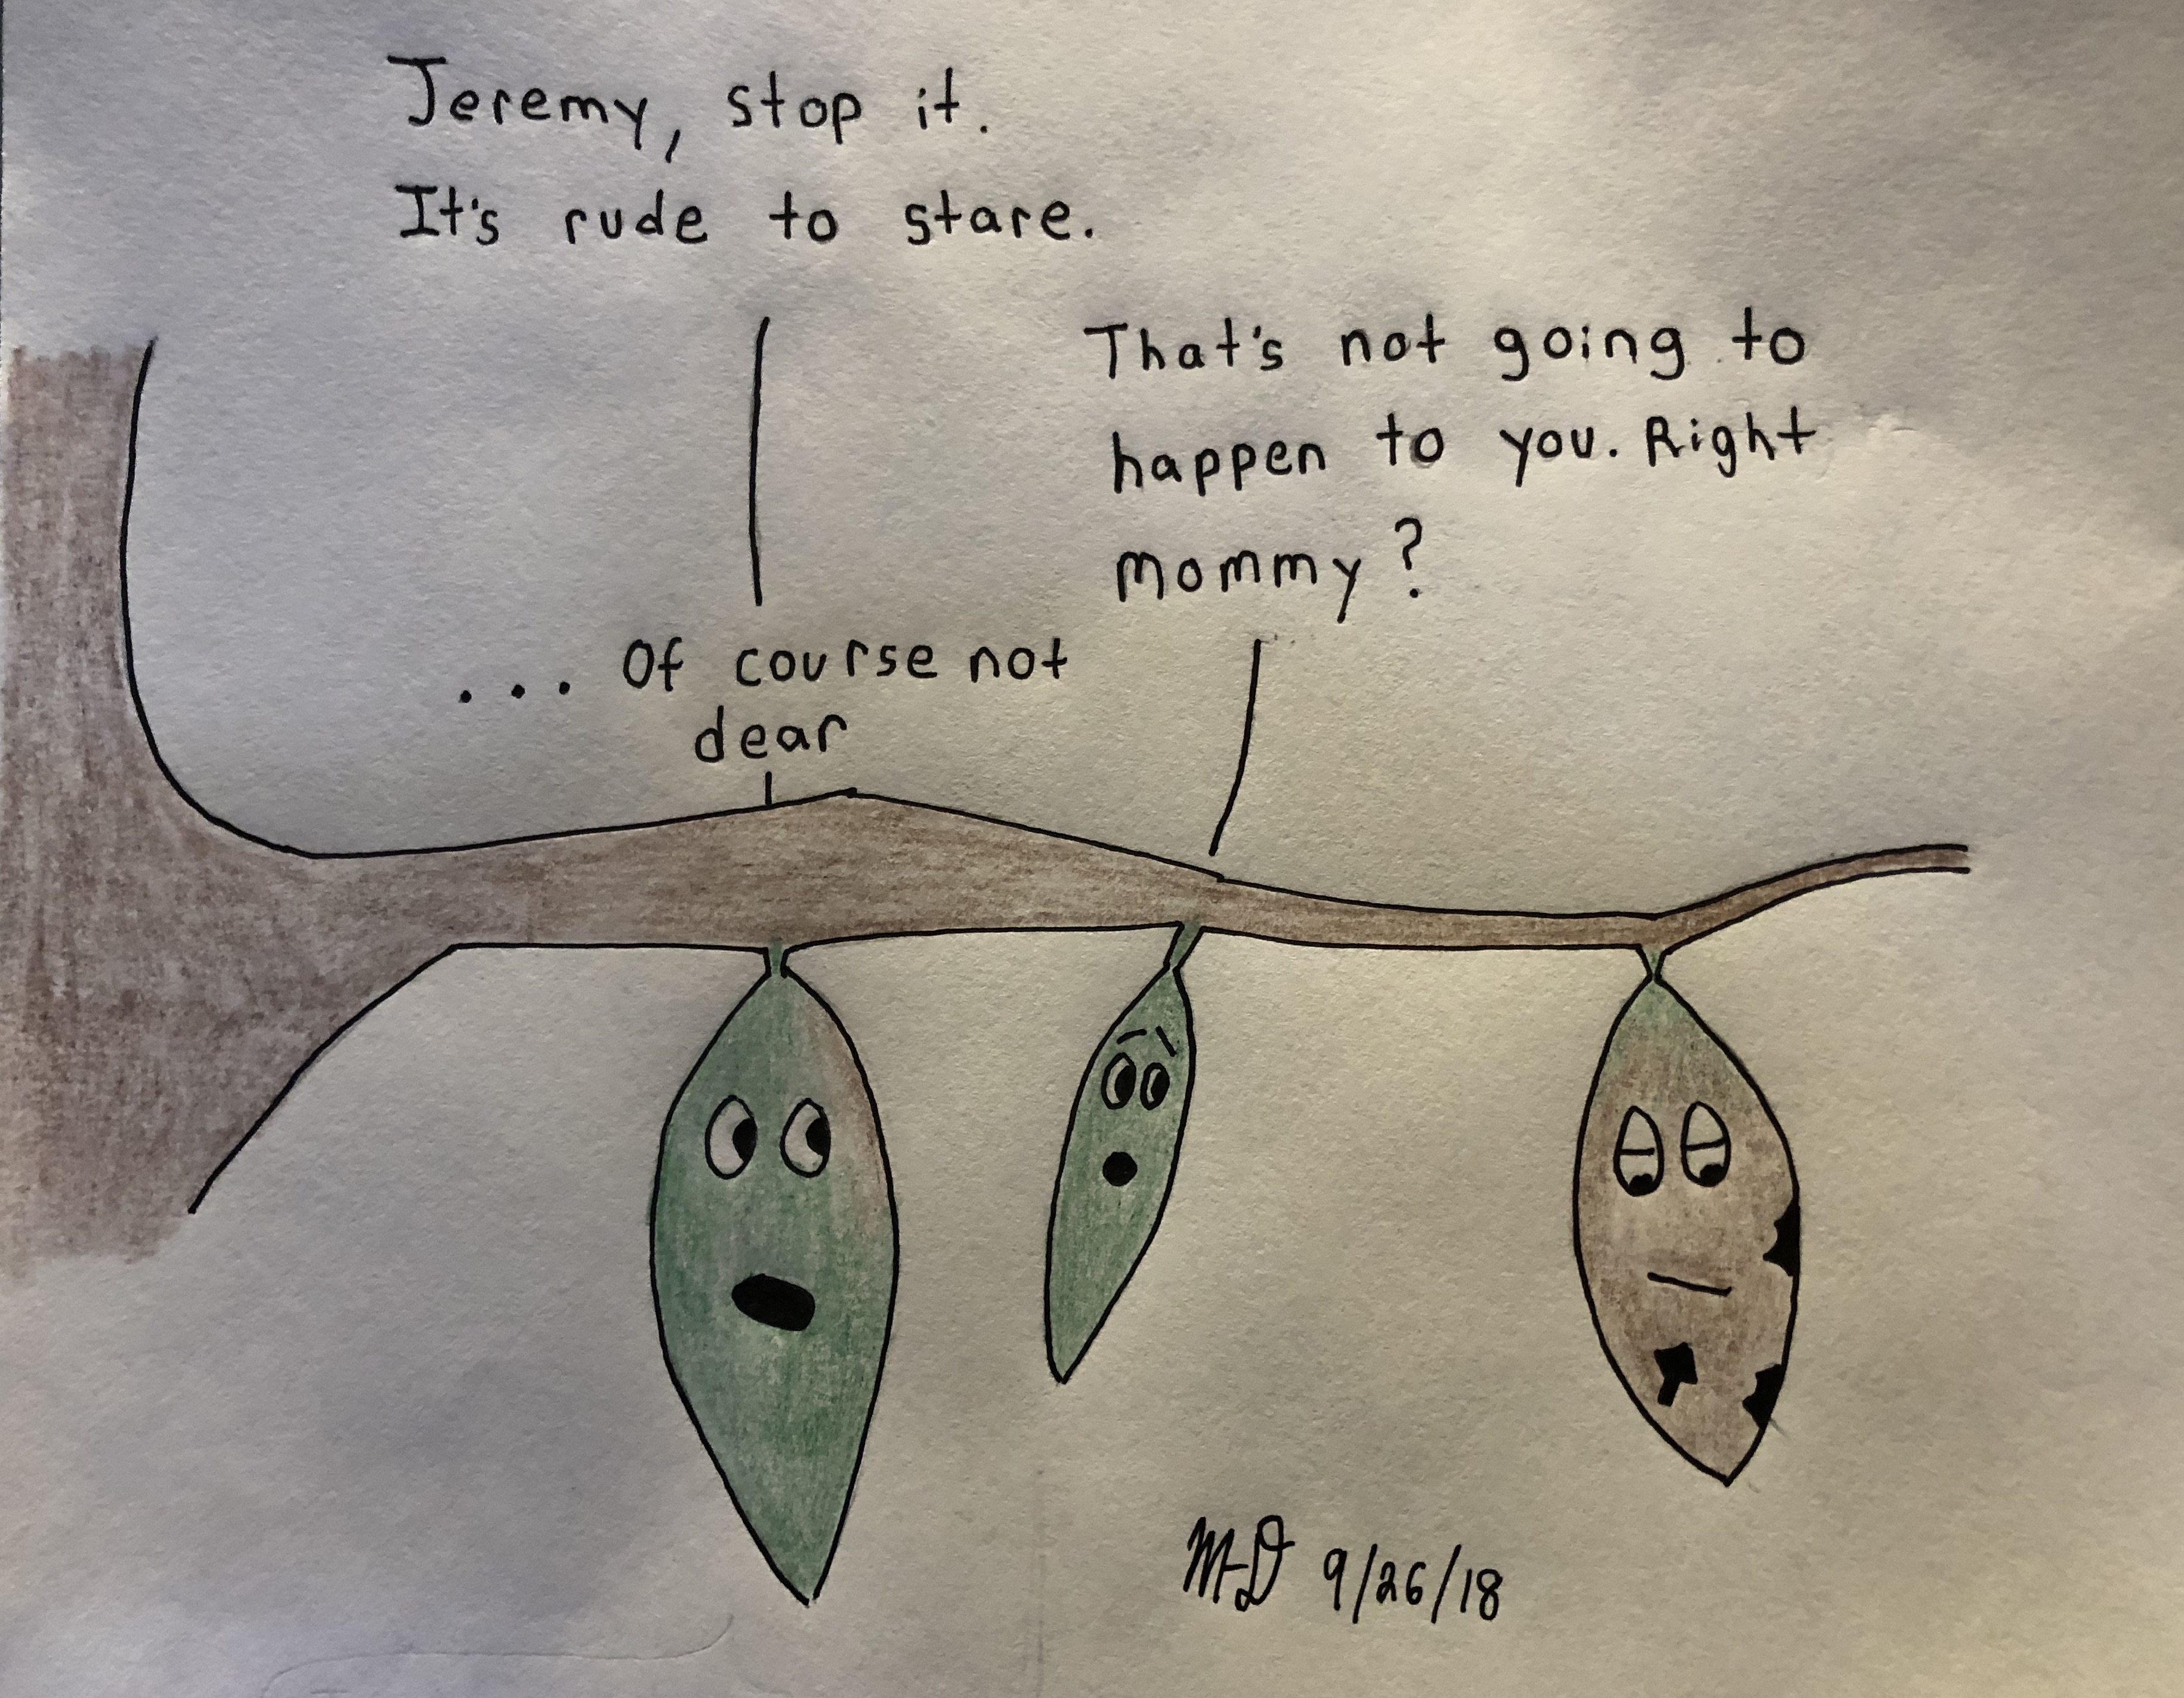 Jeremy, stop it.
It's rude to stare.
That's not going to
happen to you. Right
mommy?
... Of course not
dear
M-D 9/26/18